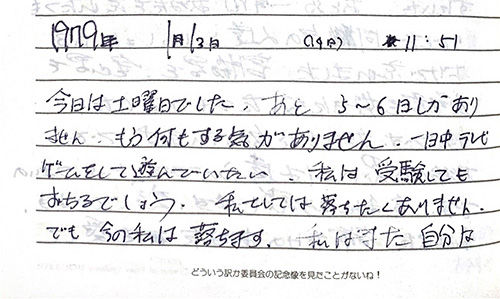 1979年 1月13日 (14日) 11:51
今日は土曜日でした。あと 5〜6日しかあり
ません。もう何もする気がありません。一日中テレビ
ゲームをして遊んでいたい。私は、受験しても
おちるでしょう。私としては落ちたくありません。
でも今の私は落ちます。私はまた自分は
どういう訳か委員会の記念像を見たことがないね!